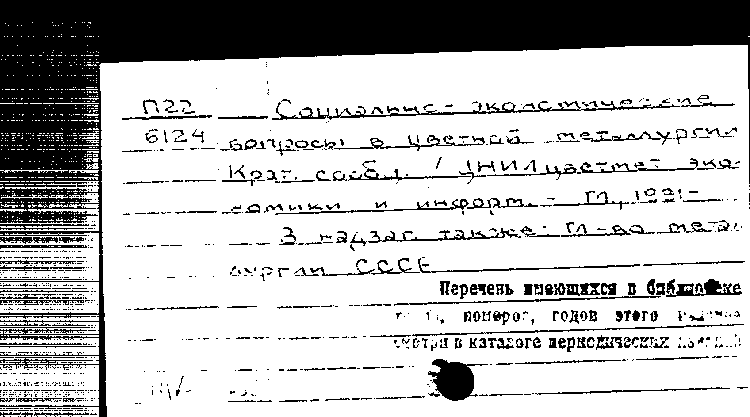 П22 Социально-экономические
6124 вопросы в цветной металлургии
Крат. сообщ. / ЦНИИцветмет эко-
номики и информ. - М., 1991-
В надзаг. также: М-во метал
лургии СССР
Перечень имеющихся в библиотеке
номеров, годов этого издания
смотри в каталоге периодических изданий